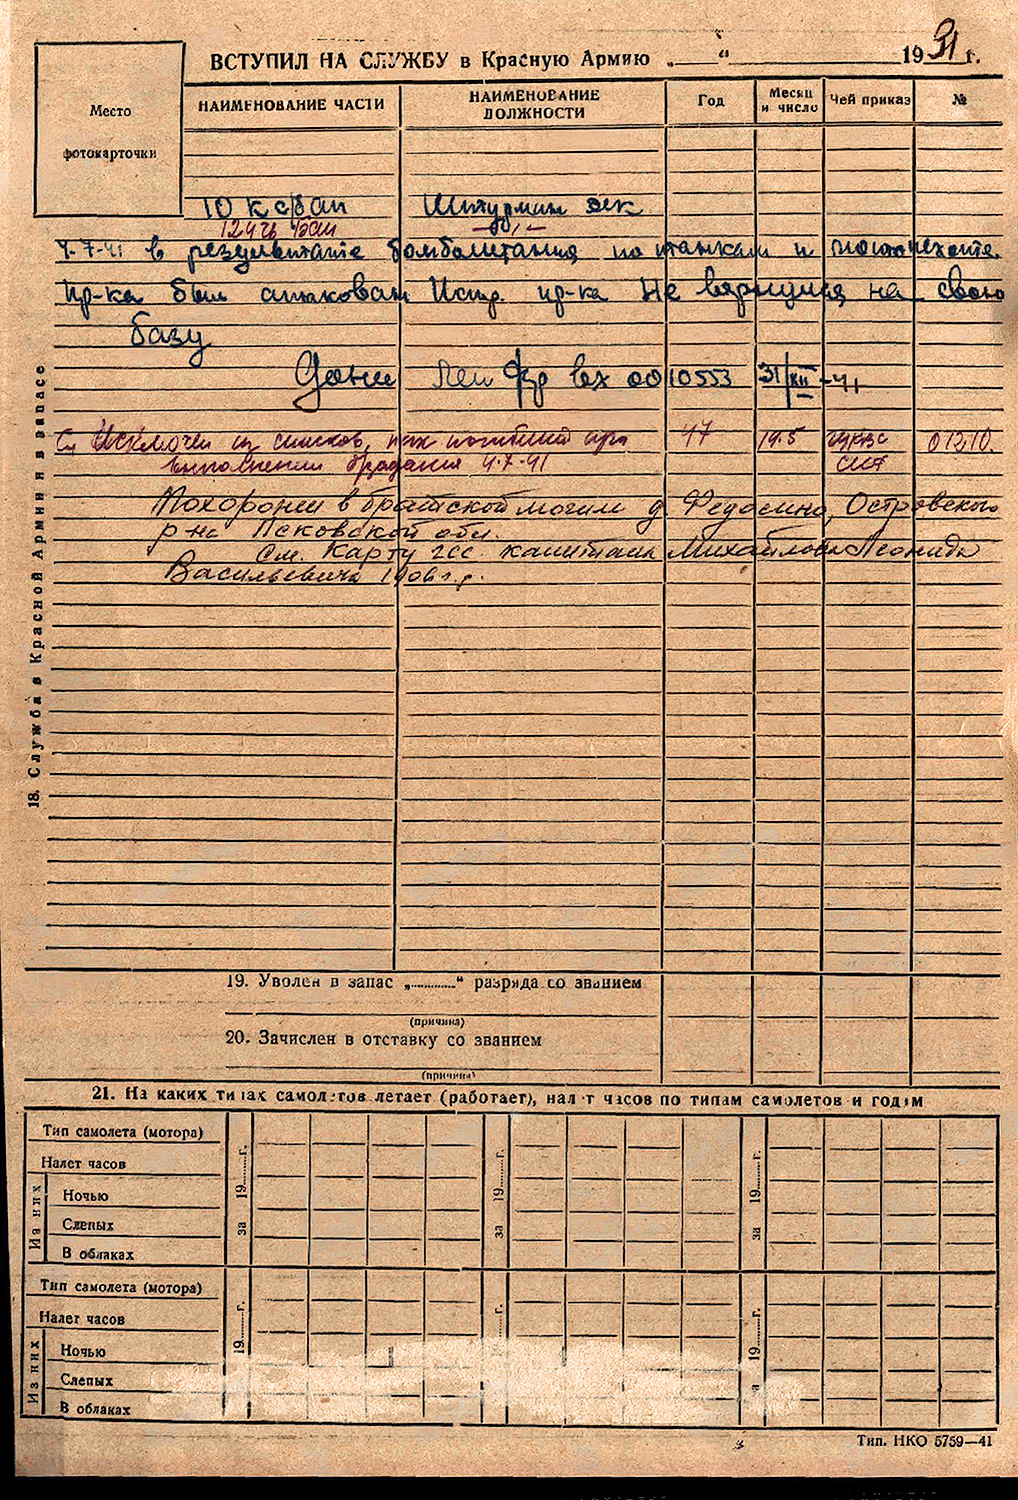 ВСТУПИЛ НА СЛУЖБУ в Красную Армию „ “ 1931 г.
Место
фотокарточки
НАИМЕНОВАНИЕ ЧАСТИ
НАИМЕНОВАНИЕ ДОЛЖНОСТИ
Год
Месяц и число
Чей приказ
№
10 к с/бап Штурман эск
4.7-41 в результате бомбометания по танкам и мотопехоте
пр-ка был атакован Истр. пр-ка Не вернулся на свою
базу
Донес Лен фр вх 0010553 31/XII-41
Исключен из списков, как погибший при 47 19.5 012,10.
выполнении задания 4.7-41
Похоронен в братской могиле д. Федосино, Островского
р-на Псковской обл.
См. Карту гсс. капитана Михайлова Леонида
Васильевича 1906 г.р.
18. Служба в Красной Армии и в запасе
19. Уволен в запас „ “ разряда со званием
(причина)
20. Зачислен в отставку со званием
(причина)
21. На каких типах самолетов летает (работает), налет часов по типам самолетов и годам
Тип самолета (мотора)
за 19 г.
за 19 г.
за 19 г.
Налет часов
Из них
Ночью
Слепых
В облаках
Тип самолета (мотора)
19 г.
г.
19 г.
Налет часов
Из них
Ночью
Слепых
В облаках
Тип. НКО 5759—41